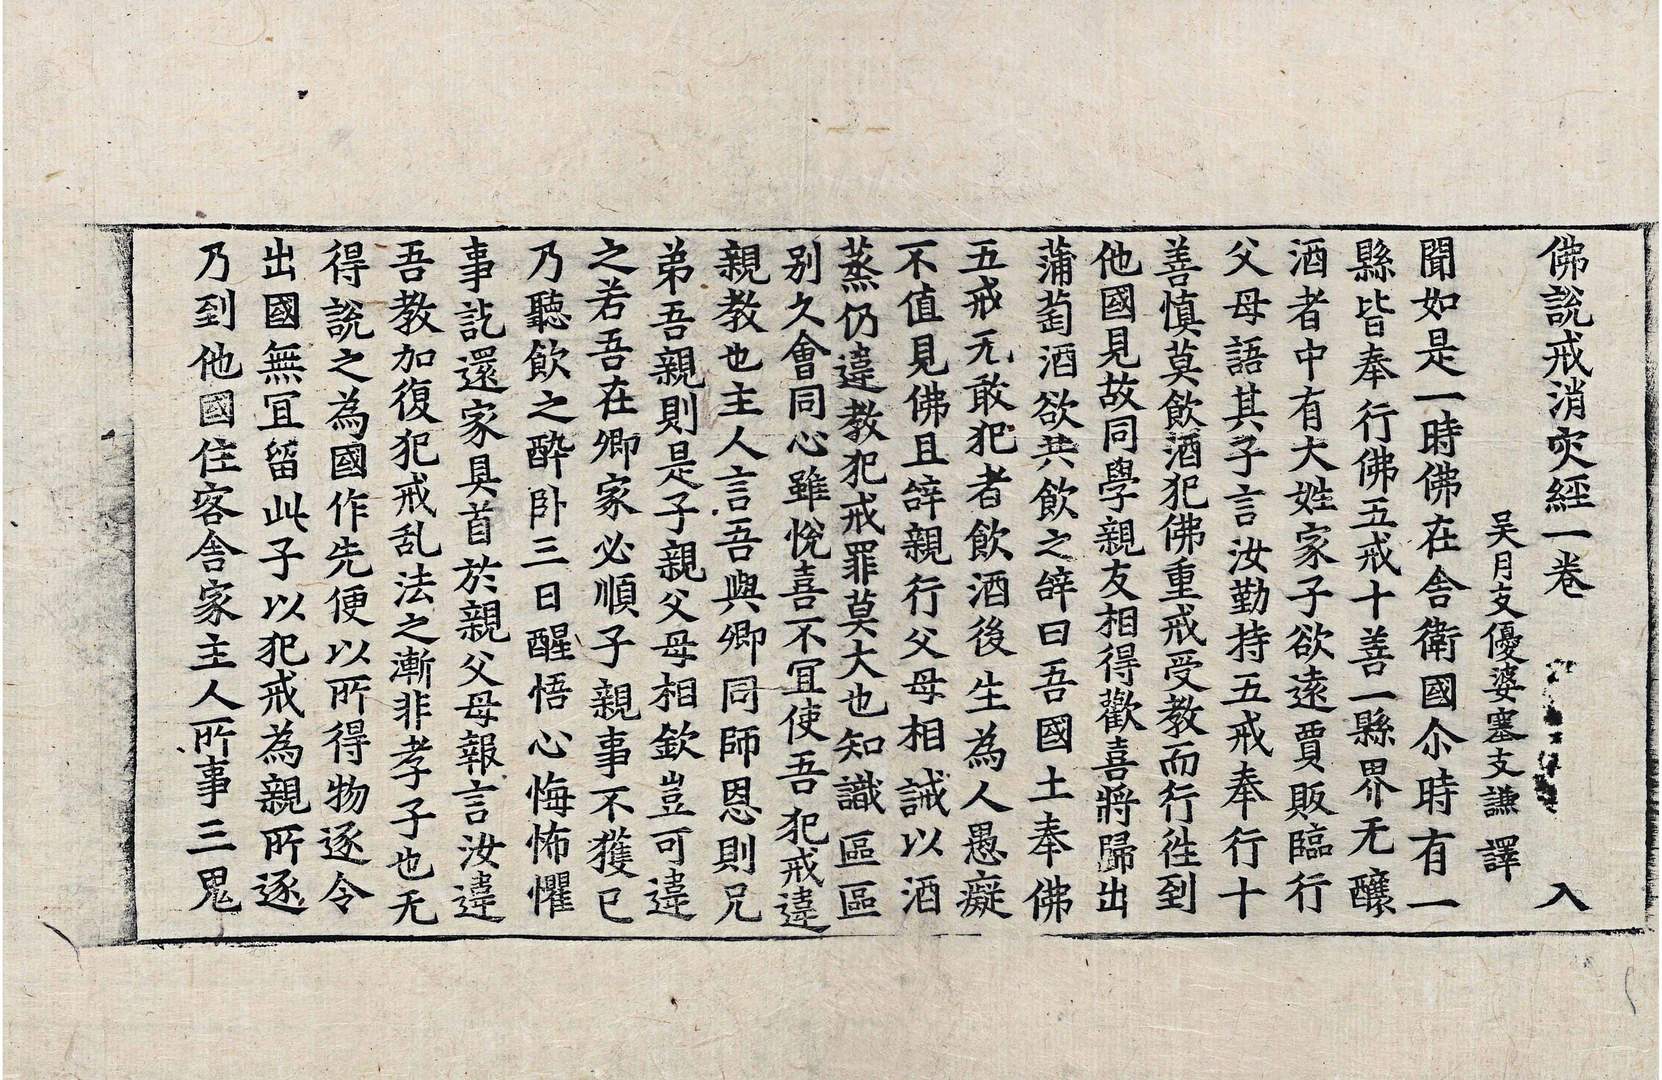 佛說戒消灾經一卷 入
吳月支優婆塞支謙譯
聞如是一時佛在舍衛國尒時有一
縣皆奉行佛五戒十善一縣界无釀
酒者中有大姓家子欲遠賈販臨行
父母語其子言汝勤持五戒奉行十
善慎莫飲酒犯佛重戒受教而行徃到
他國見故同學親友相得歡喜將歸出
蒲萄酒欲共飲之辝曰吾國土奉佛
五戒无敢犯者飲酒後生為人愚癡
不值見佛且辝親行父母相誡以酒
蒸仍違教犯戒罪莫大也知識區區
别久會同心雖悅喜不冝使吾犯戒違
親教也主人言吾與卿同師恩則兄
弟吾親則是子親父母相欽豈可違
之若吾在卿家必順子親事不獲已
乃聽飲之醉卧三日醒悟心悔怖懼
事訖還家具首於親父母報言汝違
吾教加復犯戒乱法之漸非孝子也无
得說之為國作先便以所得物逐令
出國無冝留此子以犯戒為親所逐
乃到他國住客舍家主人所事三鬼